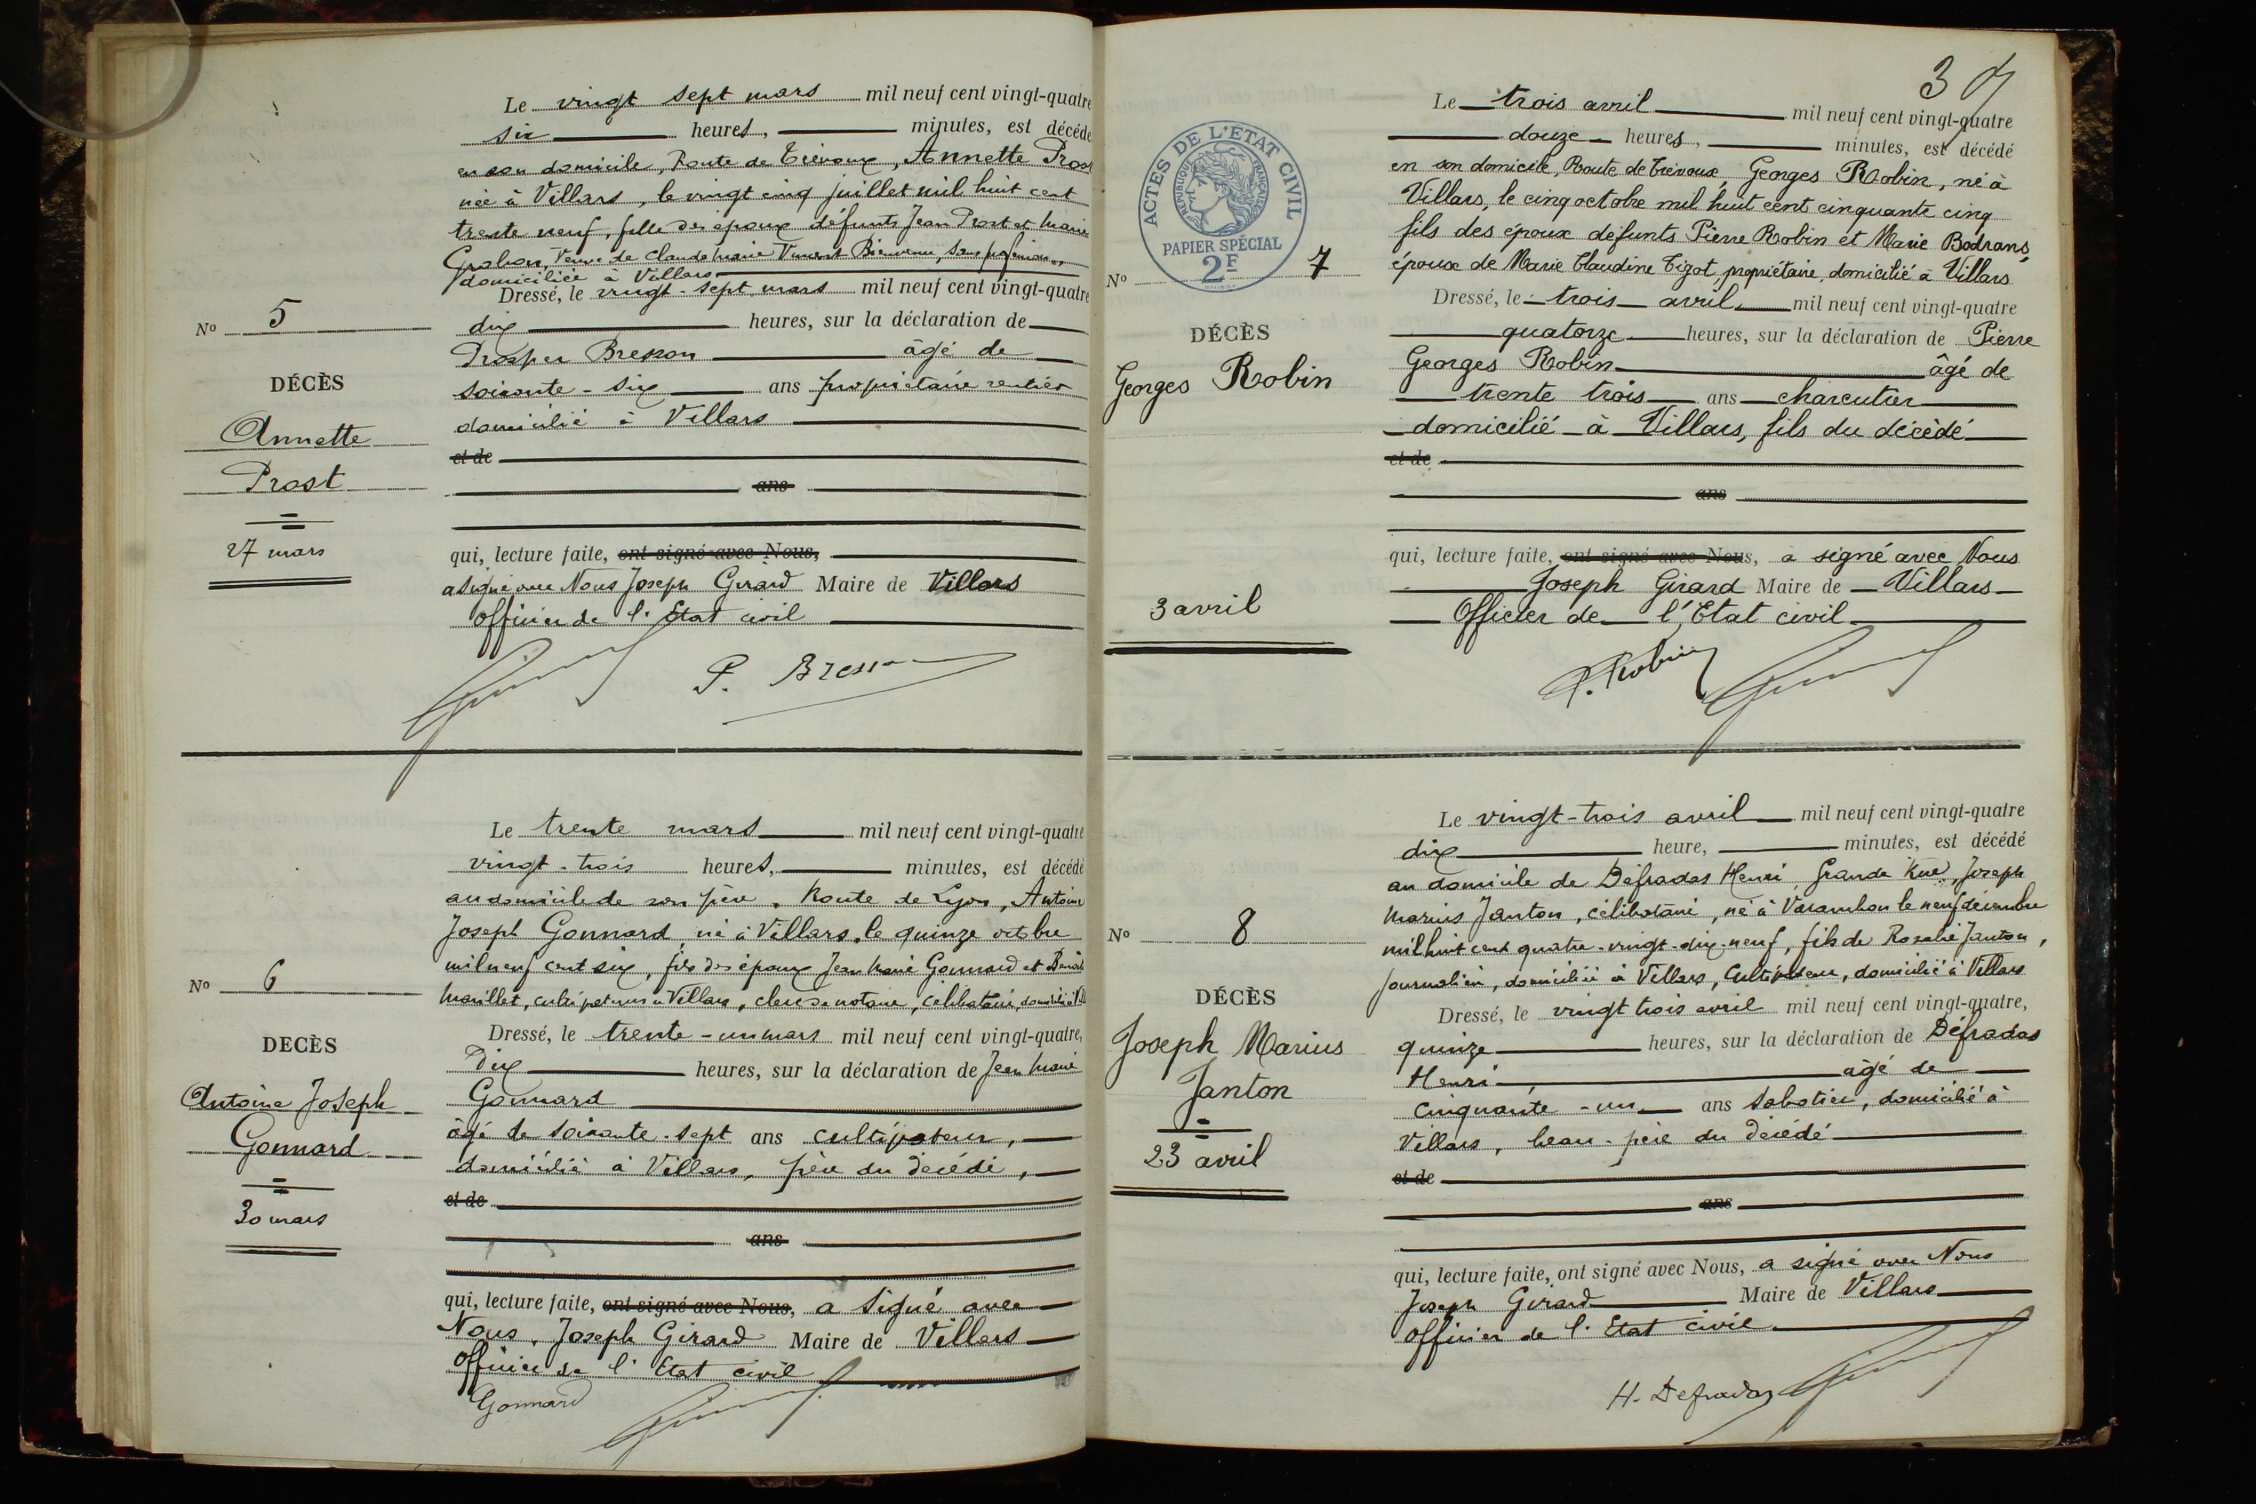 Le vingt sept mars mil neuf cent vingt-quatre
six heures, minutes, est décédé
en son domicile, Route de Trévoux, Annette Prost
née à Villars, le vingt cinq juillet mil huit cent
trente neuf, fille des époux défunts Jean Prost et Marie
Veuve de Claude Marie Vincent Bienvenu, sans profession,
domiciliée à Villars
Dressé, le vingt-sept mars mil neuf cent vingt-quatre
No 5
dix heures, sur la déclaration de
Prosper Bresson âgé de
DÉCÈS
soixante-six ans propriétaire rentier
Annette
domicilié à Villars
et de
Prost
ans
27 mars
qui, lecture faite, ont signé avec Nous,
a signé avec Nous Joseph Girard Maire de Villars
Officier de l'Etat civil
P. Bresson
Le trente mars mil neuf cent vingt-quatre
vingt-trois heures, minutes, est décédé
au domicile de son père, Route de Lyon, Antoine
Joseph Gonnard né à Villars, le quinze octobre
mil neuf cent six, fils des époux Jean Marie Gonnard et
Marillet, cultivateurs à Villars, clerc de notaire, célibataire, domicilié à
No 6
Dressé, le trente-un mars mil neuf cent vingt-quatre,
DECÈS
Dix heures, sur la déclaration de Jean Marie
Antoine Joseph
Gonnard
âgé de soixante-sept ans cultivateur,
Gonnard
domicilié à Villars, père du décédé,
et de
30 mars
ans
qui, lecture faite, ont signé avec Nous, a signé avec
Nous, Joseph Girard Maire de Villars
Officier de l'Etat civil
Gonnard
3
Le trois avril mil neuf cent vingt-quatre
douze heures, minutes, est décédé
en son domicile, Route de Trévoux, Georges Robin, né à
Villars, le cinq octobre mil huit cent cinquante cinq
fils des époux défunts Pierre Robin et Marie Bodrans,
époux de Marie Claudine Tizot, propriétaire, domicilié à Villars
ACTES DE L'ETAT CIVIL
REPUBLIQUE FRANÇAISE
PAPIER SPÉCIAL
2F
No 7
Dressé, le trois avril mil neuf cent vingt-quatre
DÉCÈS
quatorze heures, sur la déclaration de Pierre
Georges Robin
Georges Robin âgé de
trente trois ans charcutier
domicilié à Villars, fils du décédé
et de
ans
qui, lecture faite, ont signé avec Nous, a signé avec Nous
Joseph Girard Maire de Villars
3 avril
Officier de l'Etat civil
P. Robin
Le vingt-trois avril mil neuf cent vingt-quatre
dix heure, minutes, est décédé
au domicile de Défradas Henri, Grande Rue, Joseph
Marius Janton, célibataire, né à Varambon le neuf décembre
mil huit cent quatre-vingt-dix-neuf, fils de Rosalie Janton,
journalière, domiciliée à Villars, Cultivateur, domicilié à Villars
No 8
Dressé, le vingt trois avril mil neuf cent vingt-quatre,
DÉCÈS
quinze heures, sur la déclaration de Défradas
Joseph Marius
Henri âgé de
Janton
cinquante-un ans sabotier, domicilié à
Villars, beau-père du décédé
23 avril
et de
ans
qui, lecture faite, ont signé avec Nous, a signé avec Nous
Joseph Girard Maire de Villars
Officier de l'Etat civil
H. Defradas